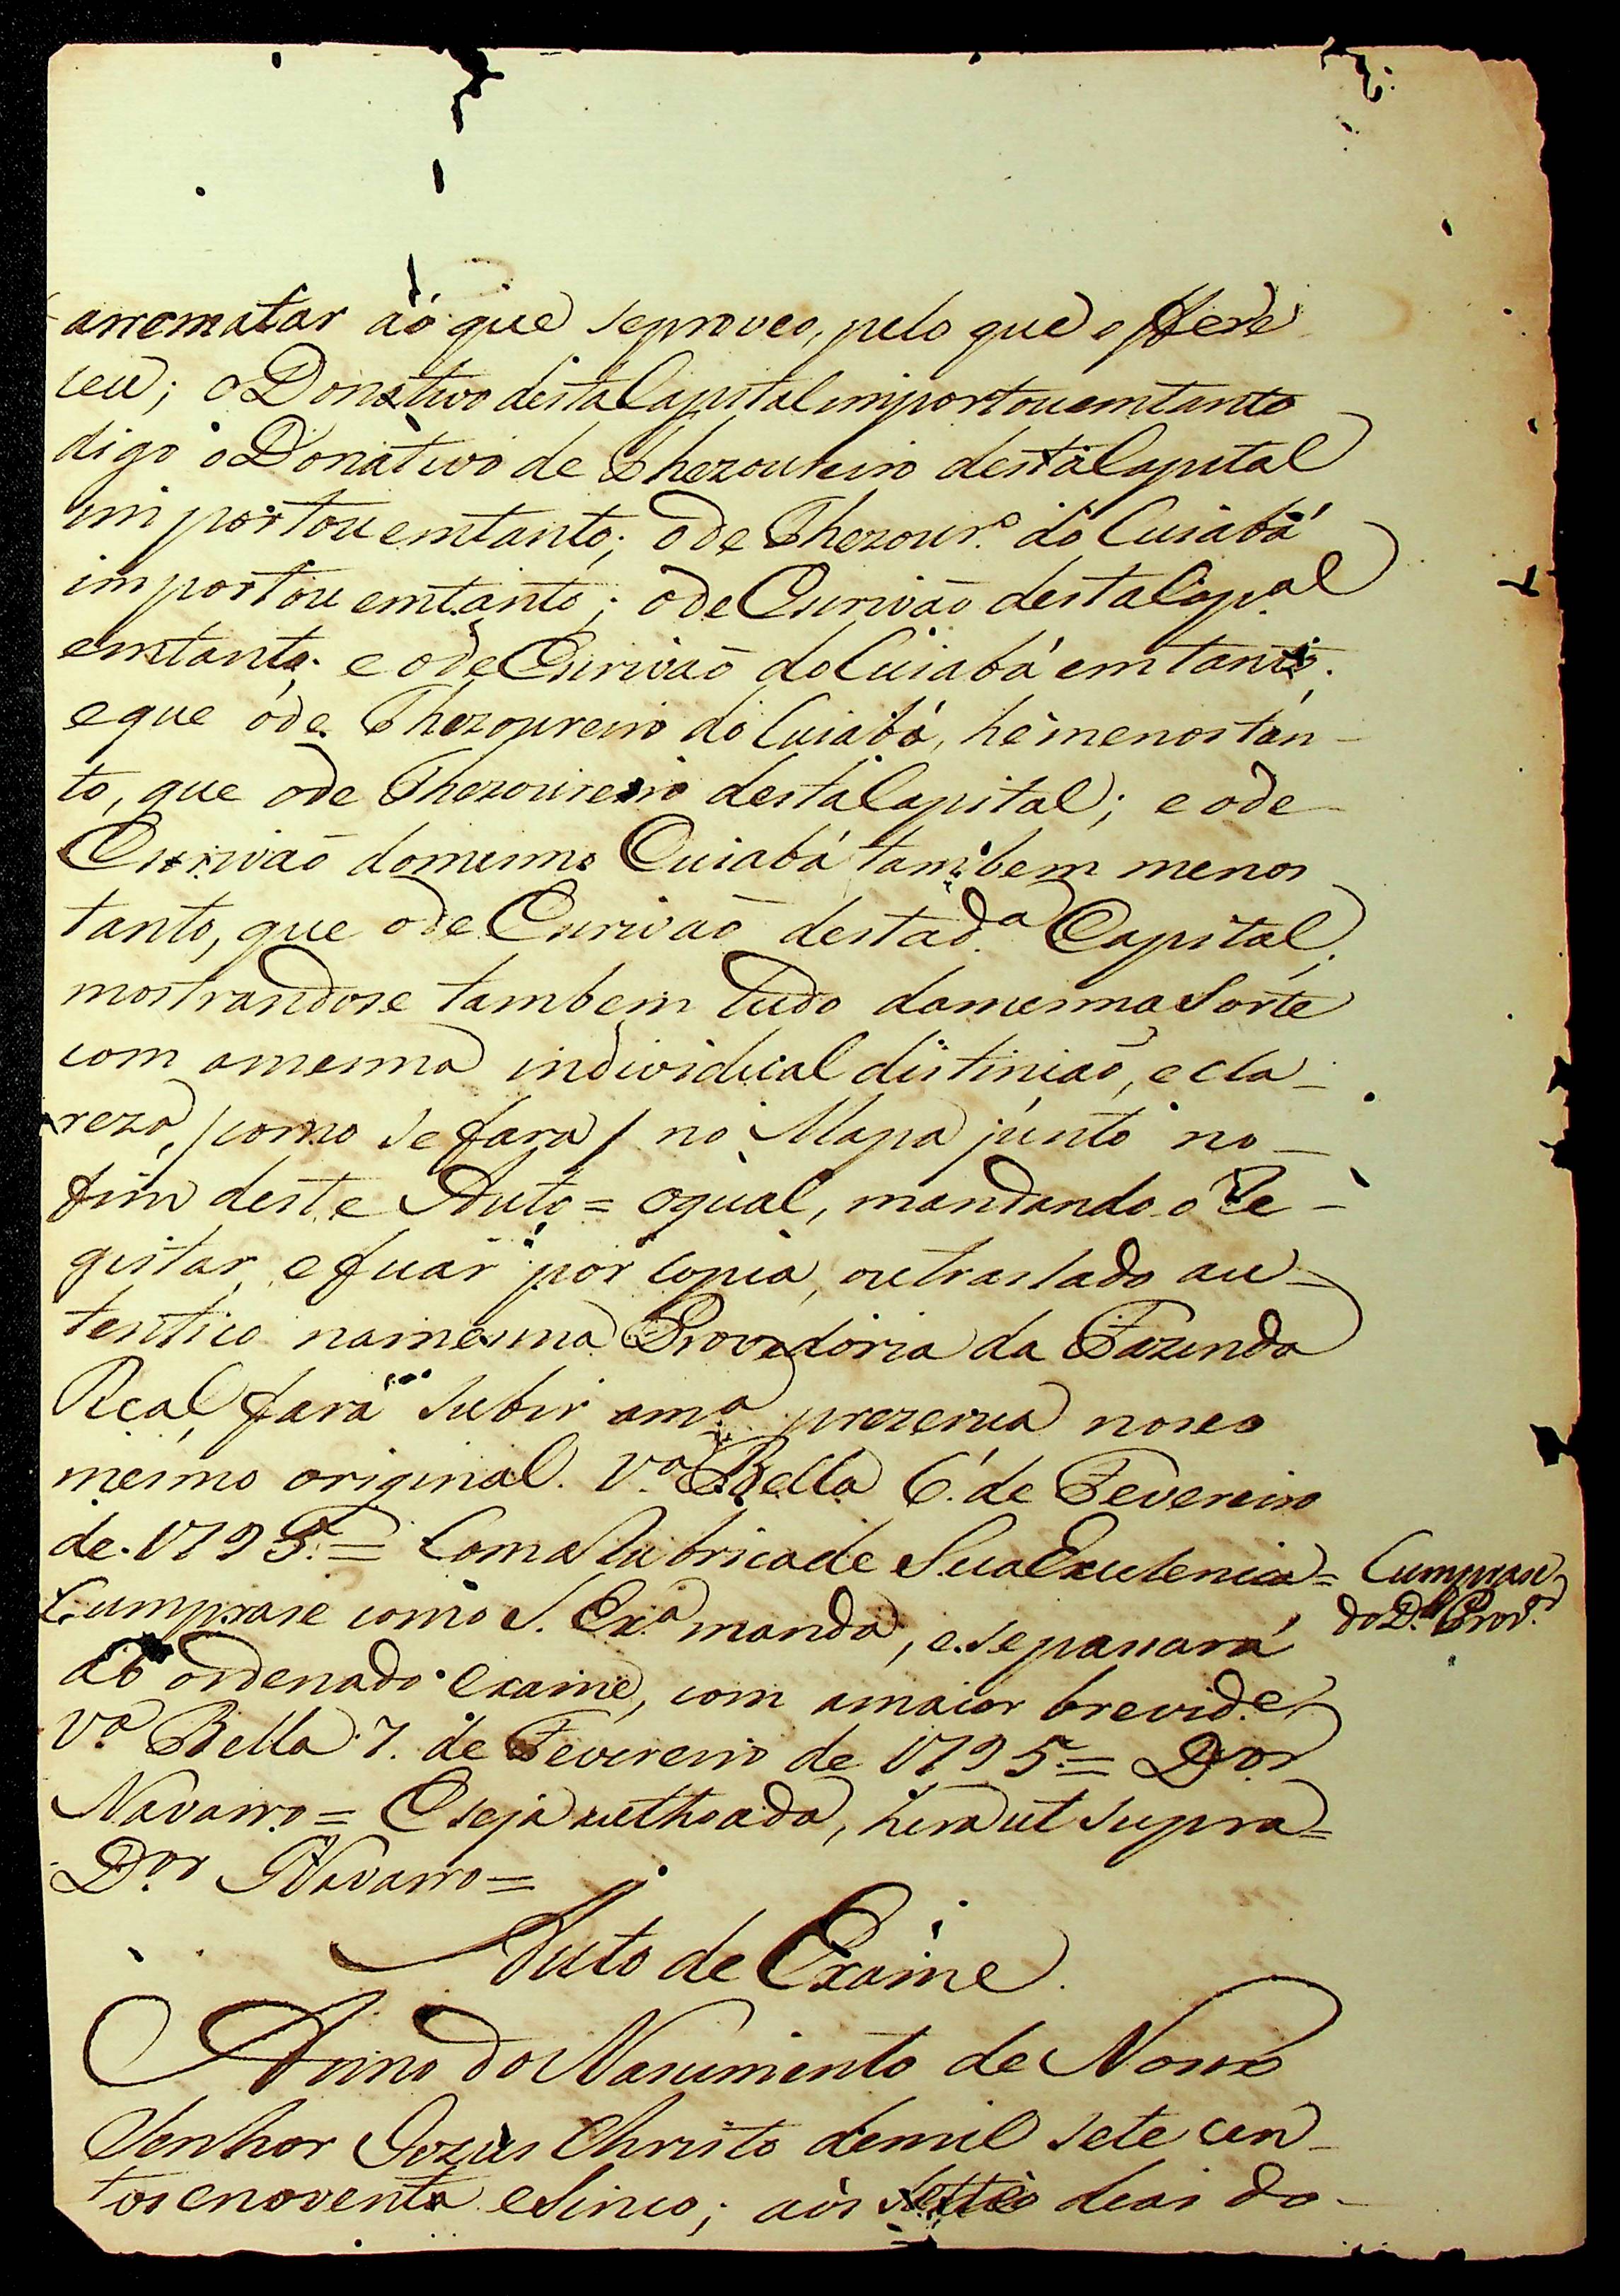 arrematar aó que seproveo, pelo que offere
ceu; o Donativo desta Capital importou emtanto
digo o Donativo de Thezoureiro desta Capital
importou emtanto; o de Thezour.º do Cuiabá
importou emtanto; o de Escrivaõ desta Cap.al
emtanto; e ode Escrivaõ do Cuiabá emtanto;
eque ode Thezoureiro do Cuiabá, hé menos tan-
to, que ode Thezoureiro desta Capital; e ode
Escrivaõ do mesmo Cuiabá tambem menos
tanto, que ode Escrivaõ desta d.ª Capital,
mostrandose tambem tudo damesma Sorte
com amesma individual distinçaõ, e cla-
reza, /como se fara/ no Mapa junto no
fim deste Auto = oqual, mandando o Re-
gistar, e ficar por copia, outraslado au-
tentico namesma Provedoria da Fazenda
Real, fará subir am.ª prezença noseo
mesmo original. V.ª Bella 6. de Fevereiro
de 1795. = Com a Rubrica de Sua Excelencia =
Cumprase
do D.or Prov.or
Cumprase como S. Ex.ª manda, e se passará
ao ordenado exame, com amaior brevid.e
V.ª Bella 7. de Fevereiro de 1795 = D.or
Navarro = E seja authoada, hera ut supra =
D.or Navarro =
Auto de Exame.
Anno do Nascimento de Nosso
Senhor Jezus Christo demil sete cen-
tos enoventa eSinco; aos Settes dias do